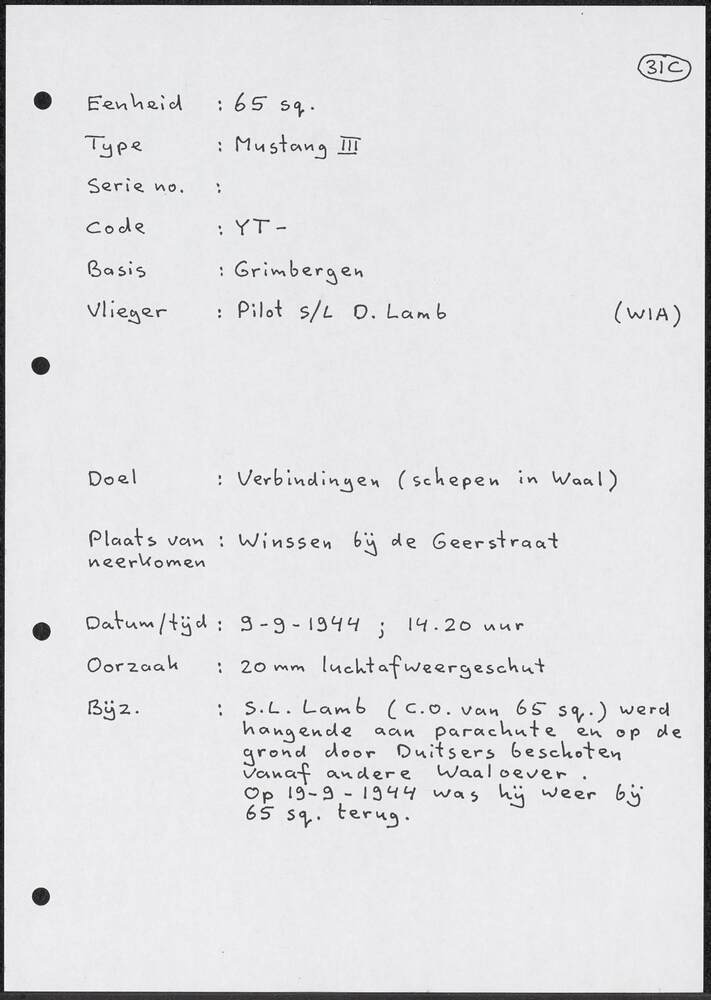 31C
Eenheid : 65 sq.
Type : Mustang III
Serie no. :
Code : YT-
Basis : Grimbergen
Vlieger : Pilot S/L D. Lamb (WIA)
Doel : Verbindingen (schepen in Waal)
Plaats van : Winssen bij de Geerstraat
neerkomen
Datum/tijd : 9-9-1944 ; 14.20 uur
Oorzaak : 20 mm luchtafweergeschut
Bijz. : S.L. Lamb (C.O. van 65 sq.) werd
hangende aan parachute en op de
grond door Duitsers beschoten
vanaf andere Waaloever.
Op 19-9-1944 was hij weer bij
65 sq. terug.